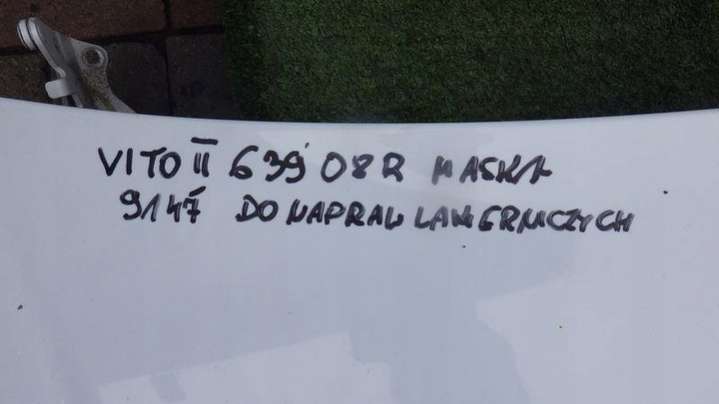 VITO II 639 08R MASKA
9147 DO NAPRAW LAKIERNICZYCH